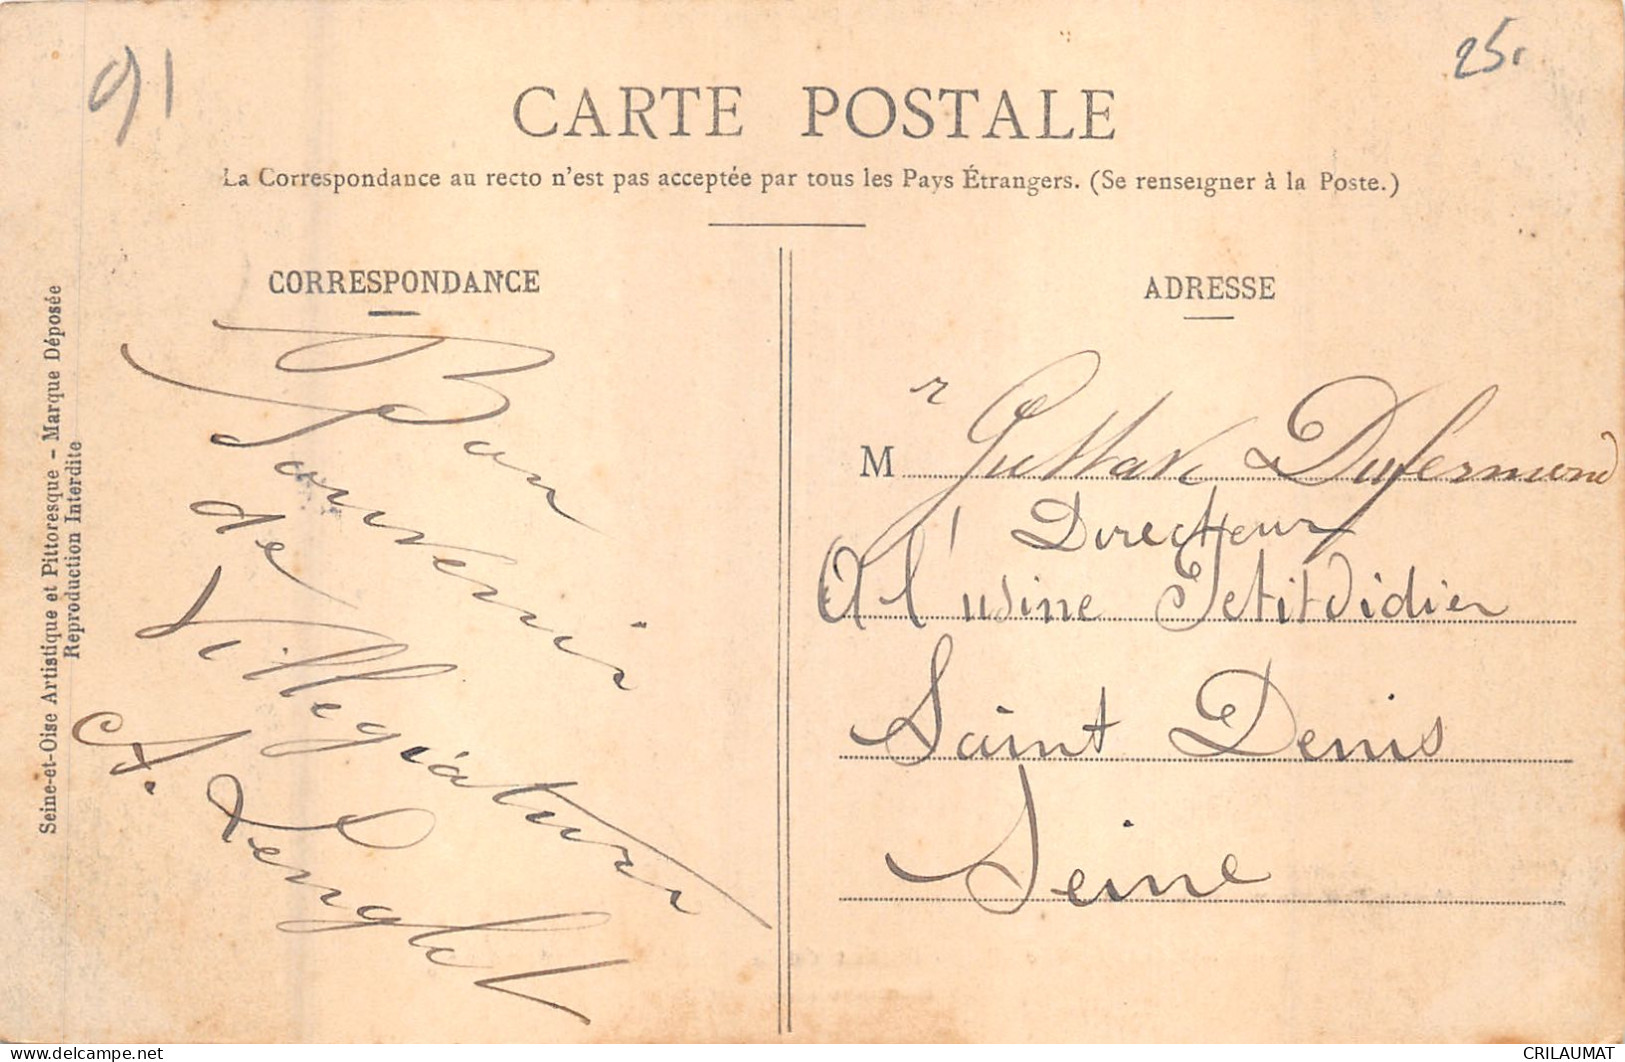 91
25
CARTE POSTALE
La Correspondance au recto n'est pas acceptée par tous les Pays Étrangers. (Se renseigner à la Poste.)
Seine-et-Oise Artistique et Pittoresque - Marque Déposée
Reproduction Interdite
CORRESPONDANCE
Bon
Souvenir
de
Villegiature
A. Lenglet
ADRESSE
M r Gustave Dufermond
Directeur
A l'usine Petitdidier
Saint Denis
Seine
CRILAUMAT